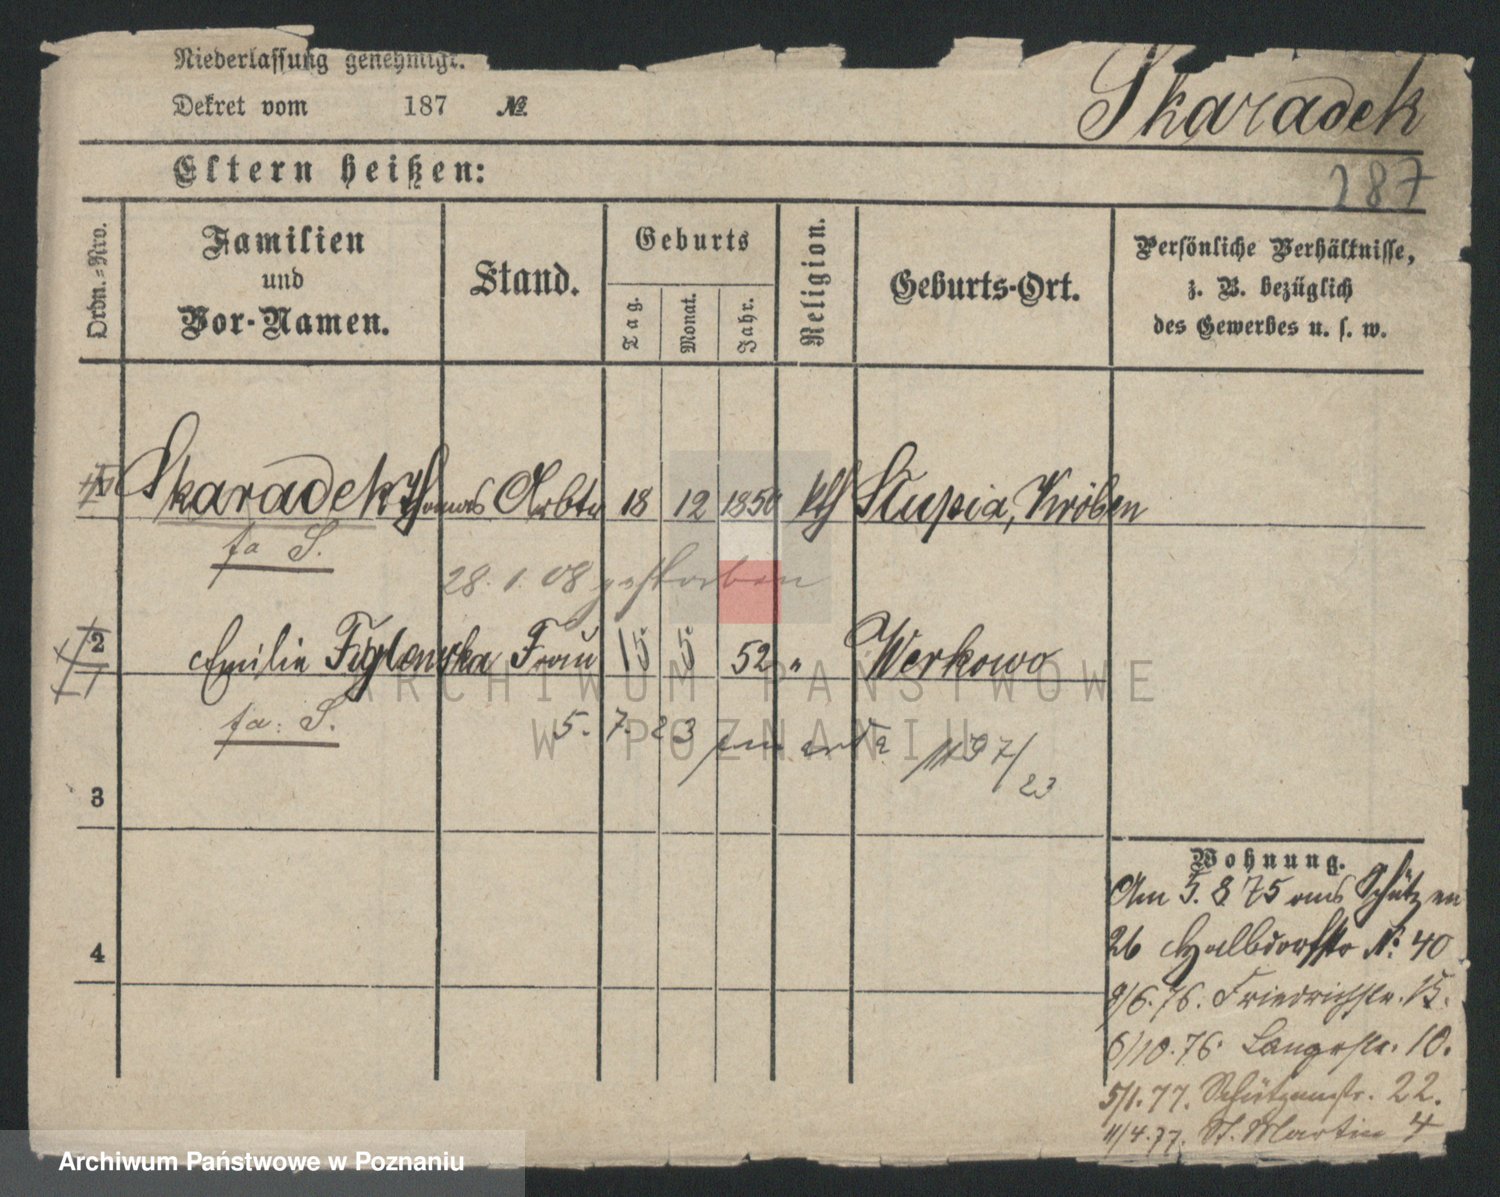 Niederlassung genehmigt.
Dekret vom 187 №
Skaradek
Eltern heißen:
287
Ordn.-Nro.
Familien
und
Vor-Namen.
Stand.
Geburts
Tag.
Monat.
Jahr.
Religion.
Geburts-Ort.
Persönliche Verhältnisse,
z. B. bezüglich
des Gewerbes u. s. w.
Skaradek Thomas Arbtr 18 12 1850 kth Slupia, Kröben
fa S.
28. 1. 08 gestorben
2 Emilie Frau 15 5 52 " Werkowo
fa. S.
5. 7. 23 umarła 1197/23
3
4
Wohnung.
Am 5. 8 75 aus Schützen
26 Halbdorfstr №. 40
9/6. 76. Friedrichstr. 13.
6/10. 76. Langestr. 10.
5/1. 77. Schützenstr. 22.
11/4. 77. St. Martin 4
ARCHIWUM PAŃSTWOWE
W POZNANIU
Archiwum Państwowe w Poznaniu